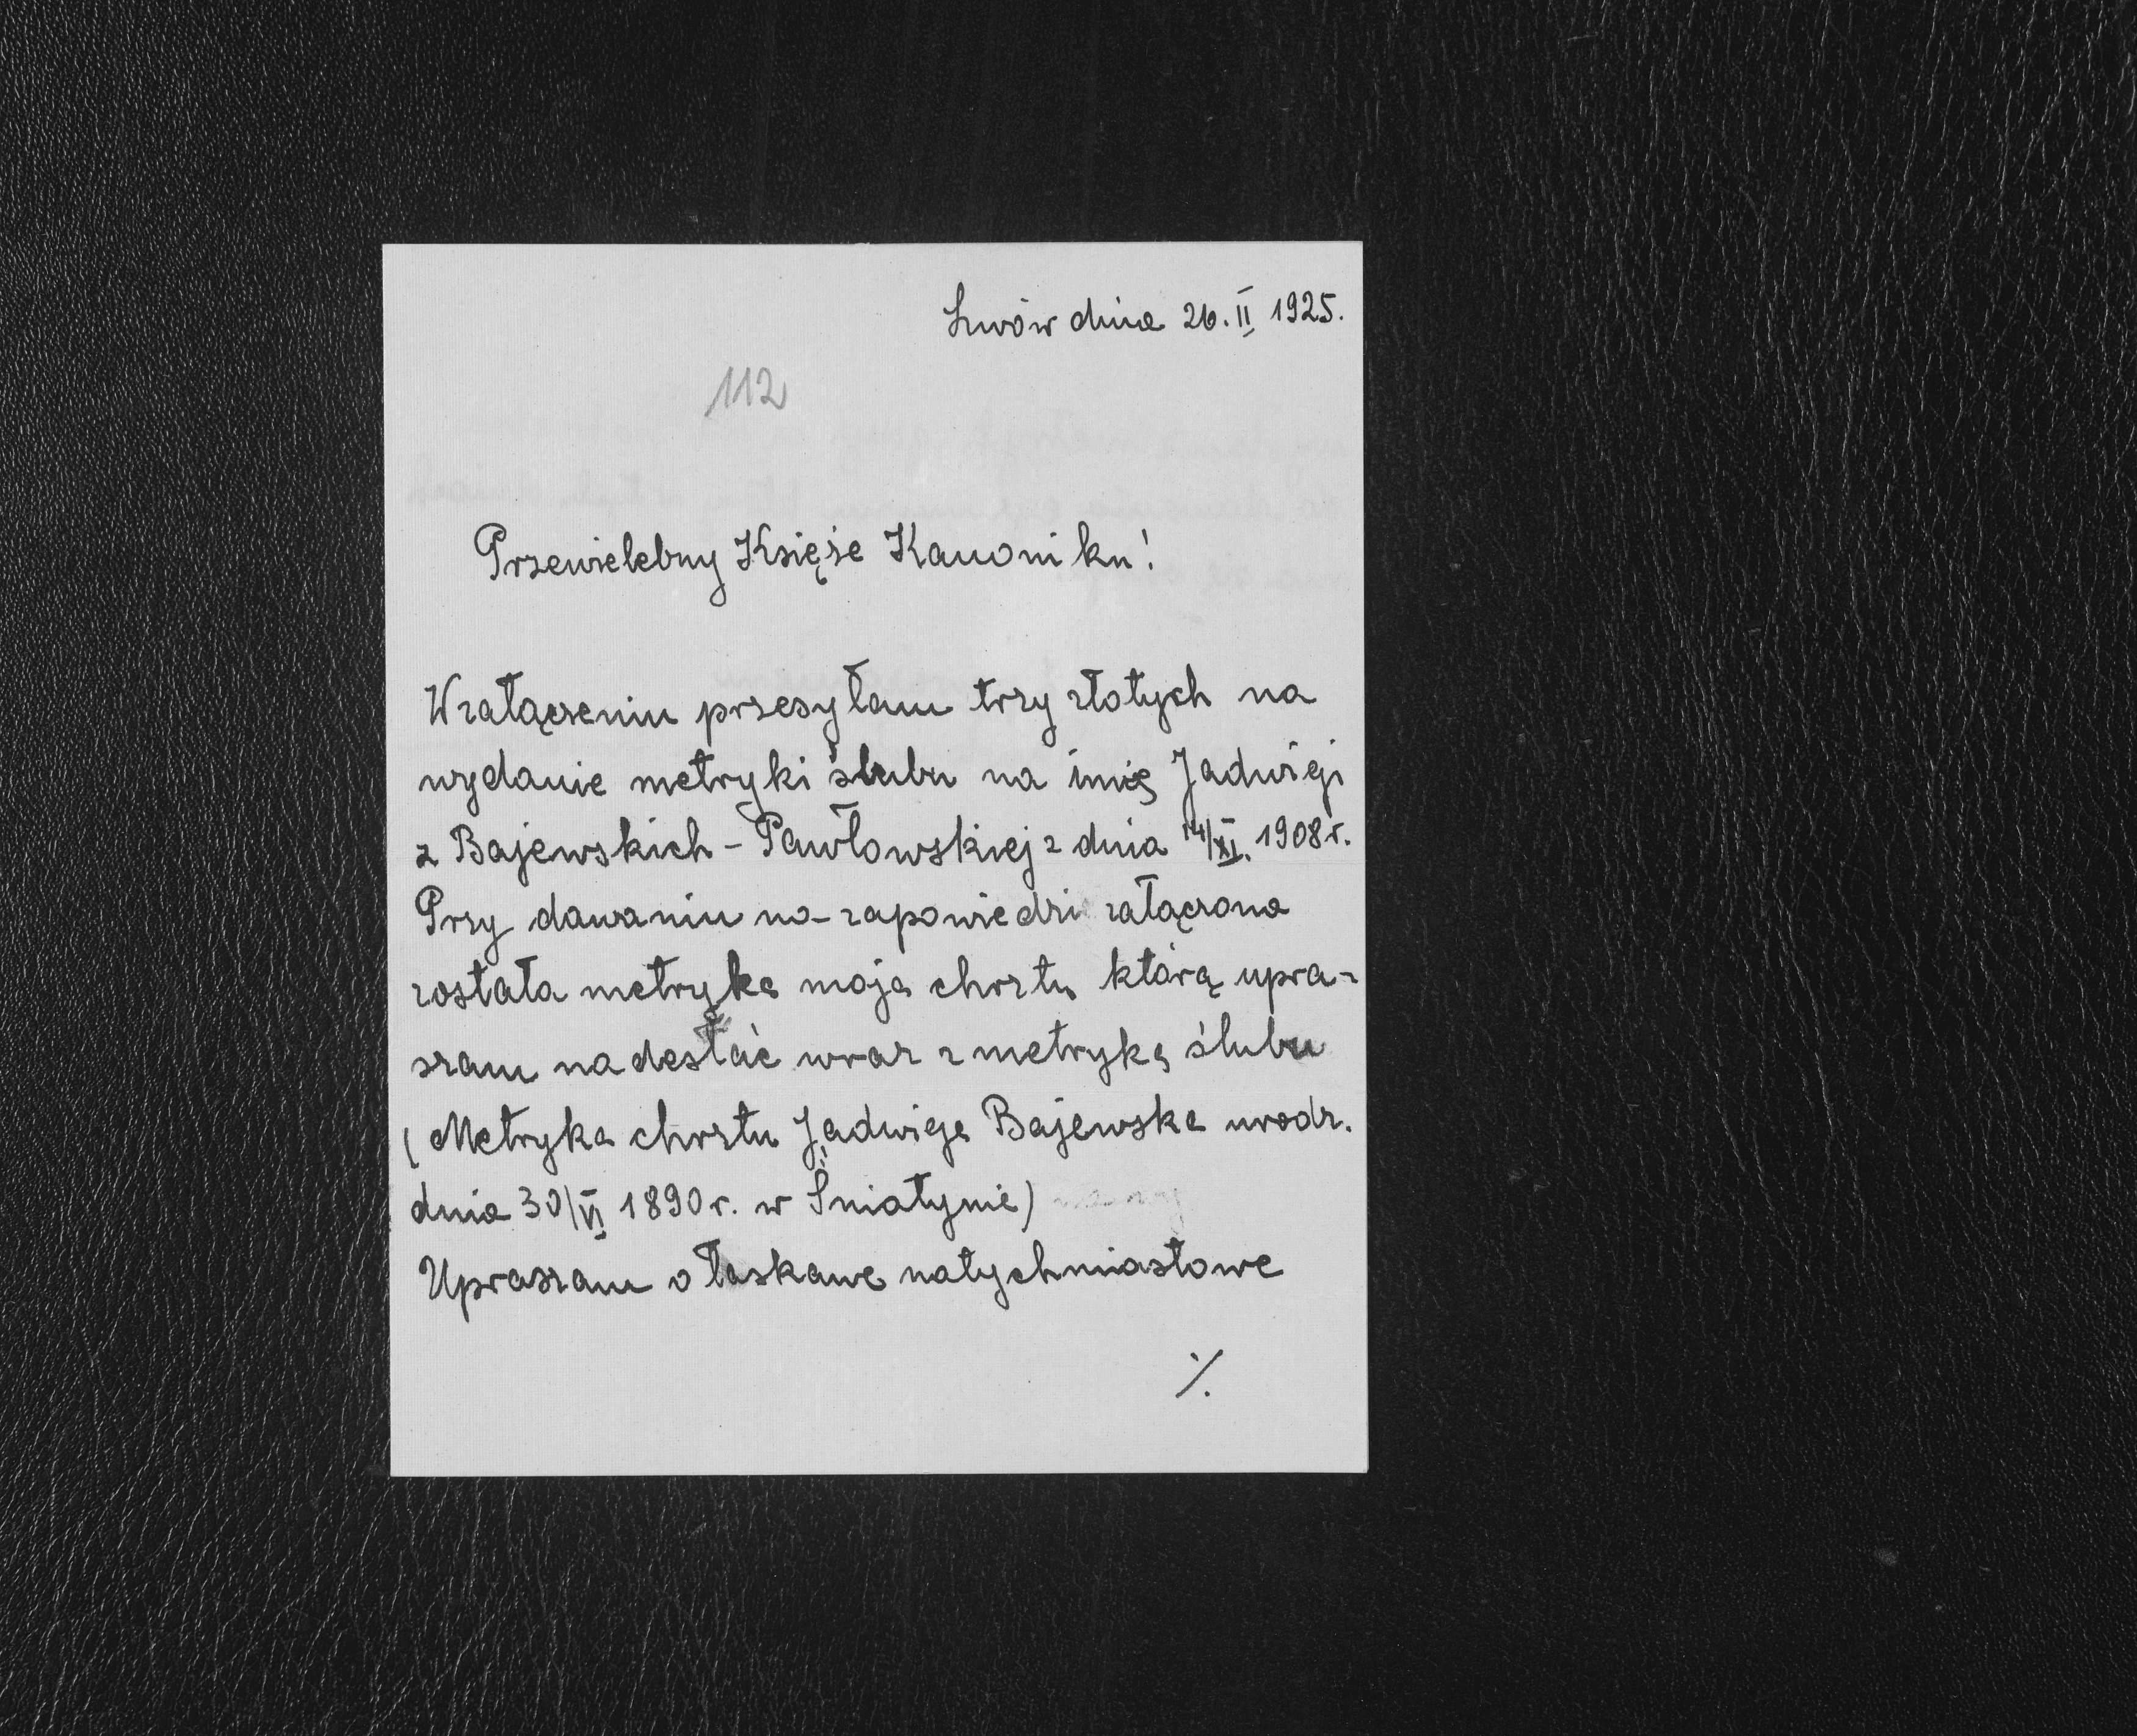 Lwów dnia 26. II 1925.
112
Przewielebny Księże Kanoniku!
W załączeniu przesyłam trzy złotych na
wydanie metryki ślubu na imię Jadwigi
z Bajewskich - Pawłowskiej z dnia 14/XI. 1908 r.
Przy dawaniu na-zapowiedzi załączona
została metryka moja chrztu którą upra-
szam nadesłać wraz z metryką ślubu
(Metryka chrztu Jadwiga Bajewska urodz.
dnia 30/VI 1890 r. w Śniatynie)
Upraszam o łaskawe natychmiastowe
./.